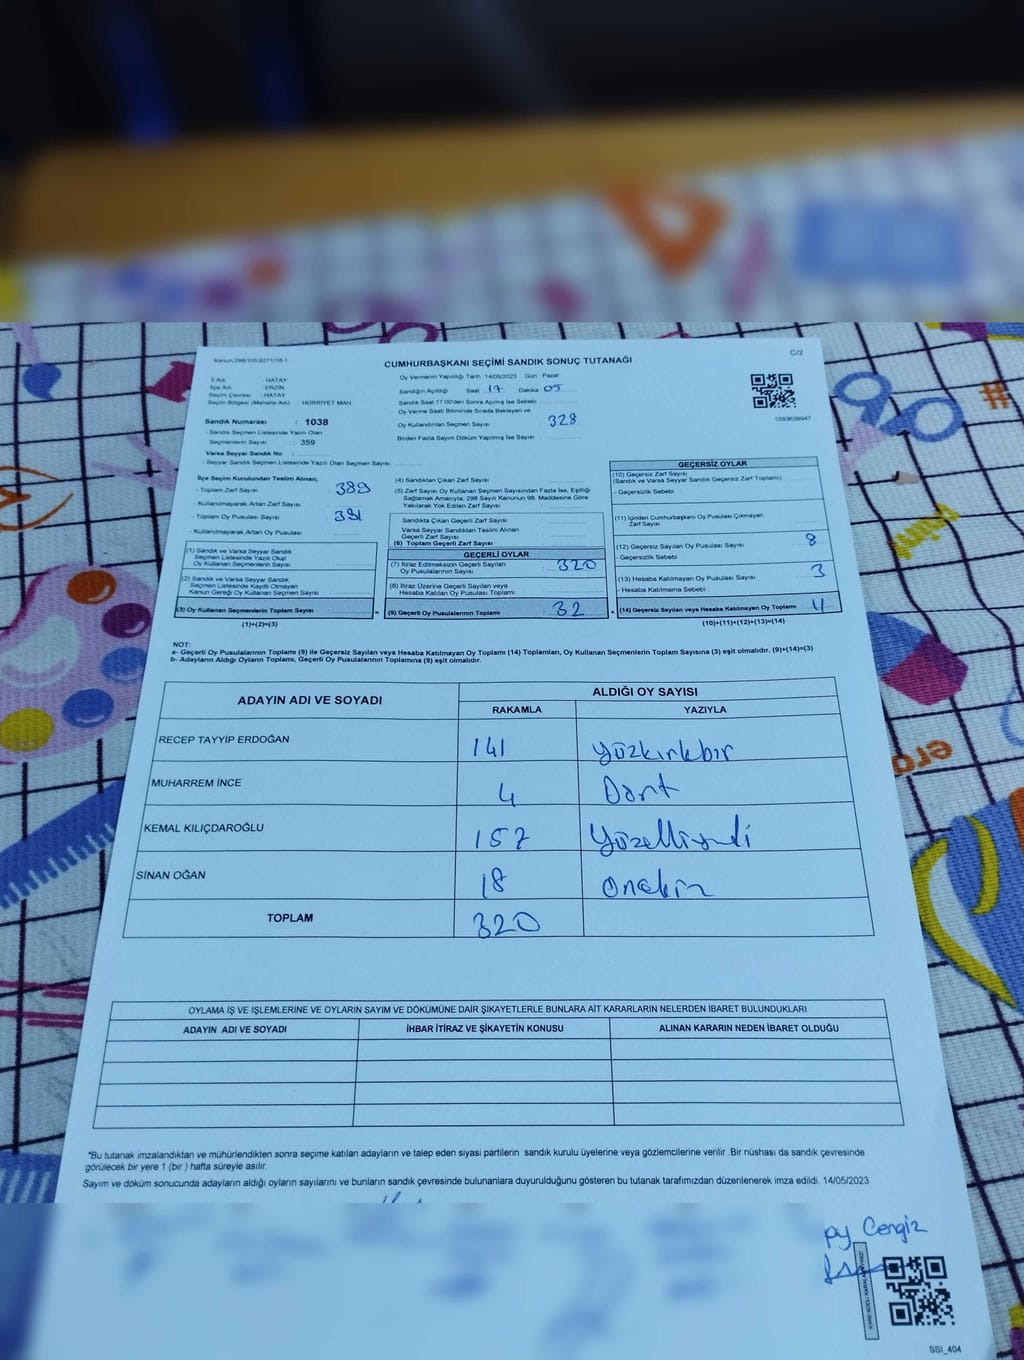 Kanun:298/105,6271/18-1
CUMHURBAŞKANI SEÇİMİ SANDIK SONUÇ TUTANAĞI
C/2
İl Adı : HATAY
İlçe Adı : ERZİN
Seçim Çevresi : HATAY
Seçim Bölgesi (Mahalle Adı) : HÜRRİYET MAH.
Sandık Numarası : 1038
- Sandık Seçmen Listesinde Yazılı Olan
Seçmenlerin Sayısı : 359
Varsa Seyyar Sandık No :
- Seyyar Sandık Seçmen Listesinde Yazılı Olan Seçmen Sayısı
Oy Vermenin Yapıldığı Tarih :14/05/2023 Gün : Pazar
Sandığın Açıldığı Saat 17 Dakika 05
Sandık Saat 17:00'den Sonra Açılmış İse Sebebi
Oy Verme Saati Bitiminde Sırada Bekleyen ve
Oy Kullandırılan Seçmen Sayısı 328
Birden Fazla Sayım Döküm Yapılmış İse Sayısı
1093638947
İlçe Seçim Kurulundan Teslim Alınan;
- Toplam Zarf Sayısı 389
- Kullanılmayarak Artan Zarf Sayısı
- Toplam Oy Pusulası Sayısı 391
- Kullanılmayarak Artan Oy Pusulası
(1) Sandık ve Varsa Seyyar Sandık
Seçmen Listesinde Yazılı Olup
Oy Kullanan Seçmenlerin Sayısı
(2) Sandık ve Varsa Seyyar Sandık
Seçmen Listesinde Kayıtlı Olmayan
Kanun Gereği Oy Kullanan Seçmenlerin Sayısı
(3) Oy Kullanan Seçmenlerin Toplam Sayısı =
(1)+(2)=(3)
(4) Sandıktan Çıkan Zarf Sayısı
(5) Zarf Sayısı Oy Kullanan Seçmen Sayısından Fazla İse, Eşitliği
Sağlamak Amacıyla; 298 Sayılı Kanunun 98. Maddesine Göre
Yakılarak Yok Edilen Zarf Sayısı
Sandıkta Çıkan Geçerli Zarf Sayısı
Varsa Seyyar Sandıktan Teslim Alınan
Geçerli Zarf Sayısı
(6) Toplam Geçerli Zarf Sayısı
GEÇERLİ OYLAR
(7) İtiraz Edilmeksizin Geçerli Sayılan
Oy Pusulalarının Sayısı 320
(8) İtiraz Üzerine Geçerli Sayılan veya
Hesaba Katılan Oy Pusulası Toplamı
(9) Geçerli Oy Pusulalarının Toplamı 32 +
GEÇERSİZ OYLAR
(10) Geçersiz Zarf Sayısı
(Sandık ve Varsa Seyyar Sandık Geçersiz Zarf Toplamı)
- Geçersizlik Sebebi
(11) İçinden Cumhurbaşkanı Oy Pusulası Çıkmayan
Zarf Sayısı
(12) Geçersiz Sayılan Oy Pusulası Sayısı 8
- Geçersizlik Sebebi
(13) Hesaba Katılmayan Oy Pusulası Sayısı 3
- Hesaba Katılmama Sebebi
(14) Geçersiz Sayılan veya Hesaba Katılmayan Oy Toplamı 11
(10)+(11)+(12)+(13)=(14)
NOT:
a- Geçerli Oy Pusulalarının Toplamı (9) ile Geçersiz Sayılan veya Hesaba Katılmayan Oy Toplamı (14) Toplamları, Oy Kullanan Seçmenlerin Toplam Sayısına (3) eşit olmalıdır. (9)+(14)=(3)
b- Adayların Aldığı Oyların Toplamı, Geçerli Oy Pusulalarının Toplamına (9) eşit olmalıdır.
ADAYIN ADI VE SOYADI ALDIĞI OY SAYISI
RAKAMLA YAZIYLA
RECEP TAYYİP ERDOĞAN 141 yüzkırkbir
MUHARREM İNCE 4 Dört
KEMAL KILIÇDAROĞLU 157 yüzelliyedi
SİNAN OĞAN 18 onsekiz
TOPLAM 320
OYLAMA İŞ VE İŞLEMLERİNE VE OYLARIN SAYIM VE DÖKÜMÜNE DAİR ŞİKAYETLERLE BUNLARA AİT KARARLARIN NELERDEN İBARET BULUNDUKLARI
ADAYIN ADI VE SOYADI İHBAR İTİRAZ VE ŞİKAYETİN KONUSU ALINAN KARARIN NEDEN İBARET OLDUĞU
*Bu tutanak imzalandıktan ve mühürlendikten sonra seçime katılan adayların ve talep eden siyasi partilerin sandık kurulu üyelerine veya gözlemcilerine verilir .Bir nüshası da sandık çevresinde
görülecek bir yere 1 (bir ) hafta süreyle asılır.
Sayım ve döküm sonucunda adayların aldığı oyların sayılarını ve bunların sandık çevresinde bulunanlara duyurulduğunu gösteren bu tutanak tarafımızdan düzenlenerek imza edildi. 14/05/2023
Cengiz
SSI_404